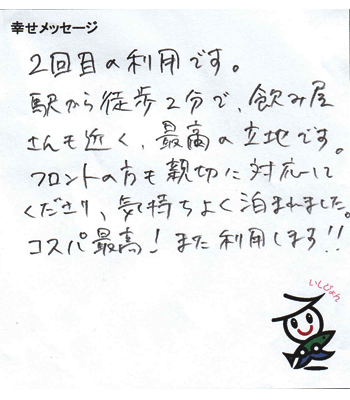 幸せメッセージ
2回目の利用です。
駅から徒歩2分で、飲み屋
さんも近く、最高の立地です。
フロントの方も親切に対応して
くださり、気持ちよく泊まれました。
コスパ最高！また利用します!!
いしじょん